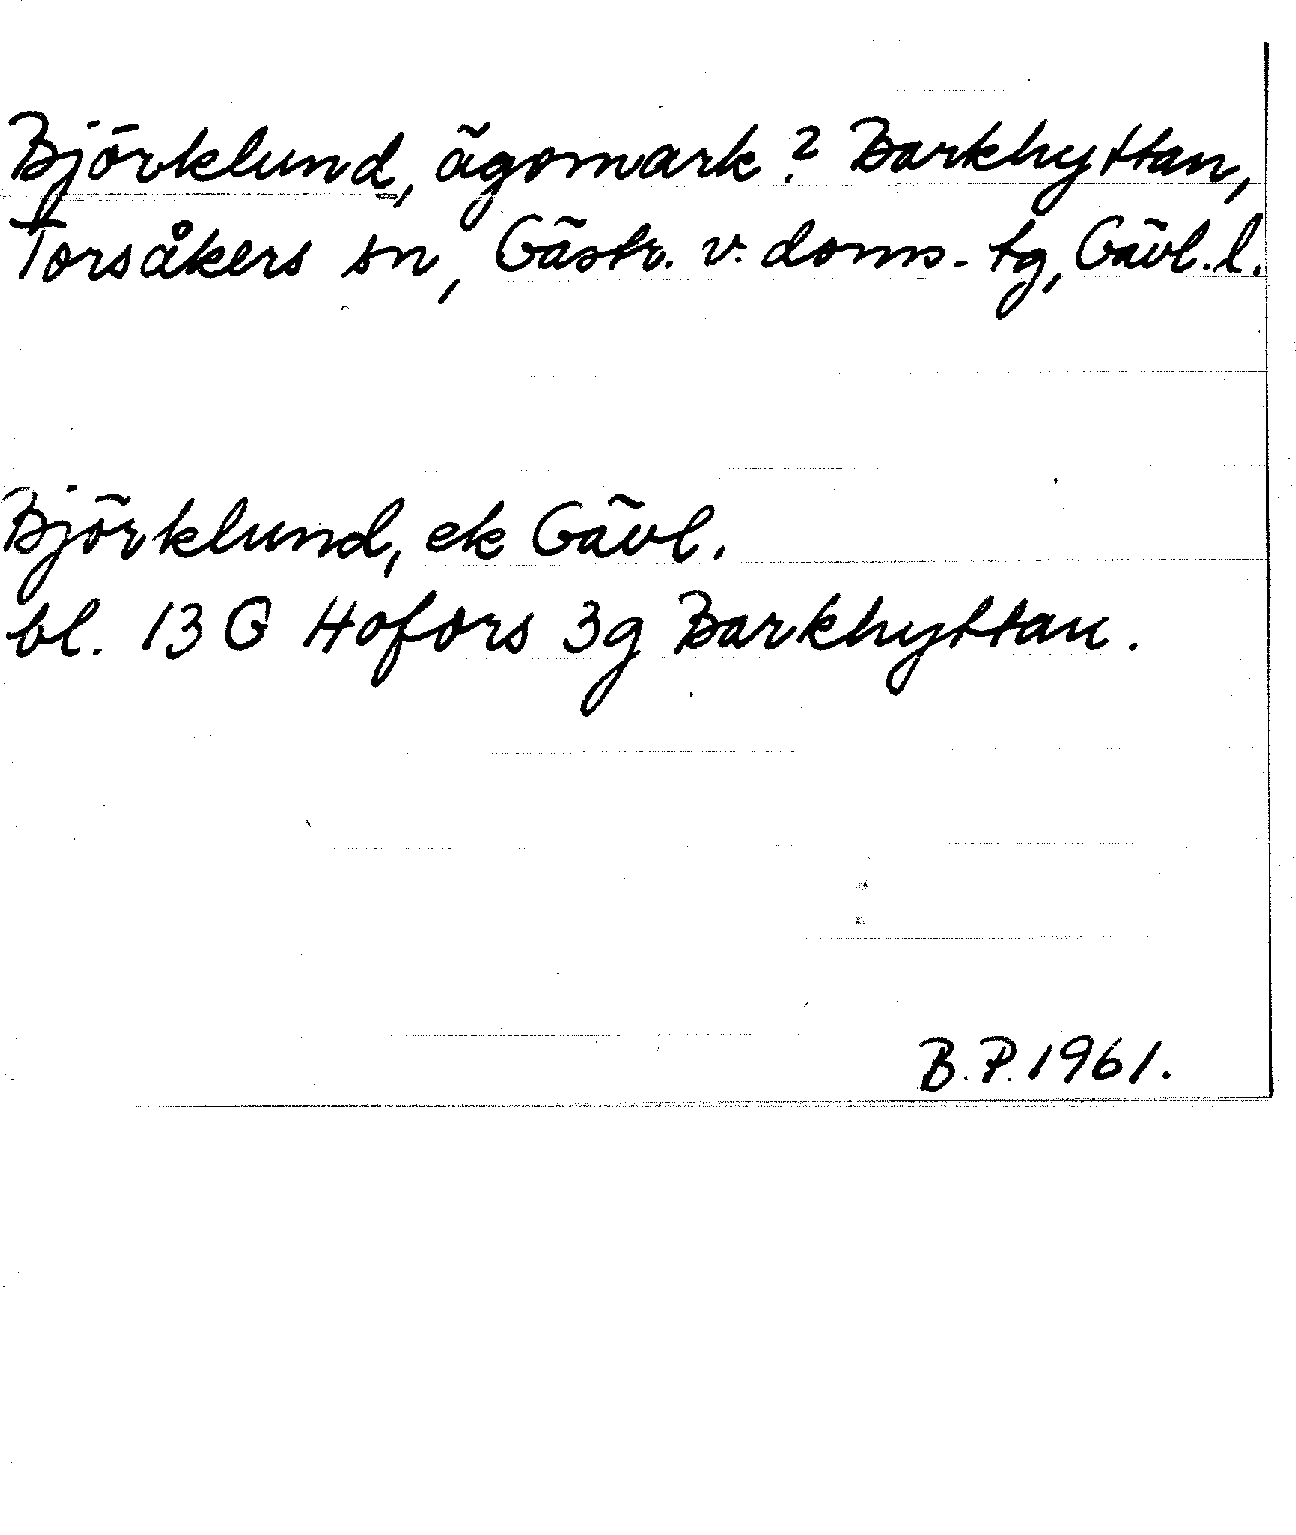 Björklund, ägomark? Barkhyttan,
Torsåkers sn, Gästr. v. doms. tg, Gävl. l.
Björklund, ek Gävl.
bl. 13 G Hofors 3g Barkhyttan.
B.P. 1961.